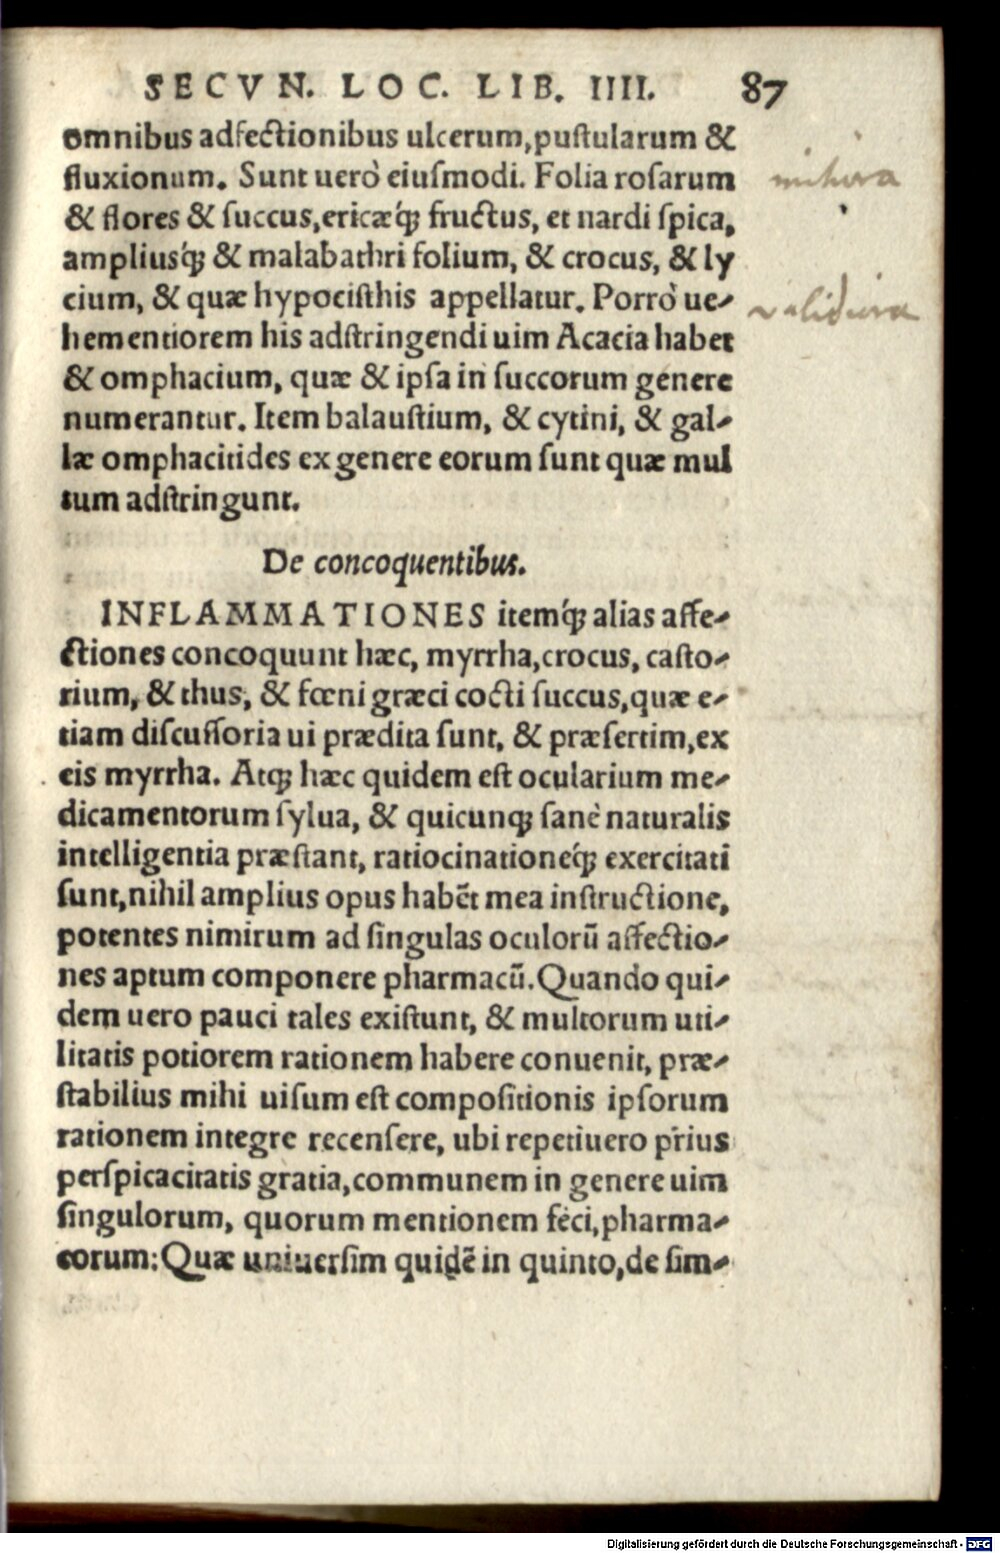 SECVN. LOC. LIB. IIII. 87
omnibus adfectionibus ulcerum,puſtularum &
fluxionum. Sunt uerò eiuſmodi. Folia roſarum
mitiora
& flores & ſuccus,ericæq́; fructus, et nardi ſpica,
ampliusq́; & malabathri folium, & crocus, & ly
cium, & quæ hypociſthis appellatur. Porrò ue-
validiora
hementiorem his adſtringendi uim Acacia habet
& omphacium, quæ & ipſa in ſuccorum genere
numerantur. Item balauſtium, & cytini, & gal-
læ omphacitides ex genere eorum ſunt quæ mul
tum adſtringunt.
De concoquentibus.
INFLAMMATIONES itemq́; alias affe-
ctiones concoquunt hæc, myrrha,crocus, caſto-
rium, & thus, & fœni græci cocti ſuccus,quæ e-
tiam diſcuſſoria ui prædita ſunt, & præſertim,ex
eis myrrha. Atq; hæc quidem eſt ocularium me-
dicamentorum ſylua, & quicunq; ſanè naturalis
intelligentia præſtant, ratiocinationeq́; exercitati
ſunt,nihil amplius opus habēt mea inſtructione,
potentes nimirum ad ſingulas oculorū affectio-
nes aptum componere pharmacū. Quando qui-
dem uero pauci tales exiſtunt, & multorum uti-
litatis potiorem rationem habere conuenit, præ-
ſtabilius mihi uiſum eſt compoſitionis ipſorum
rationem integre recenſere, ubi repetiuero prius
perſpicacitatis gratia,communem in genere uim
ſingulorum, quorum mentionem feci,pharma-
corum: Quæ uniuerſim quidē in quinto,de ſim-
Digitalisierung gefördert durch die Deutsche Forschungsgemeinschaft - DFG